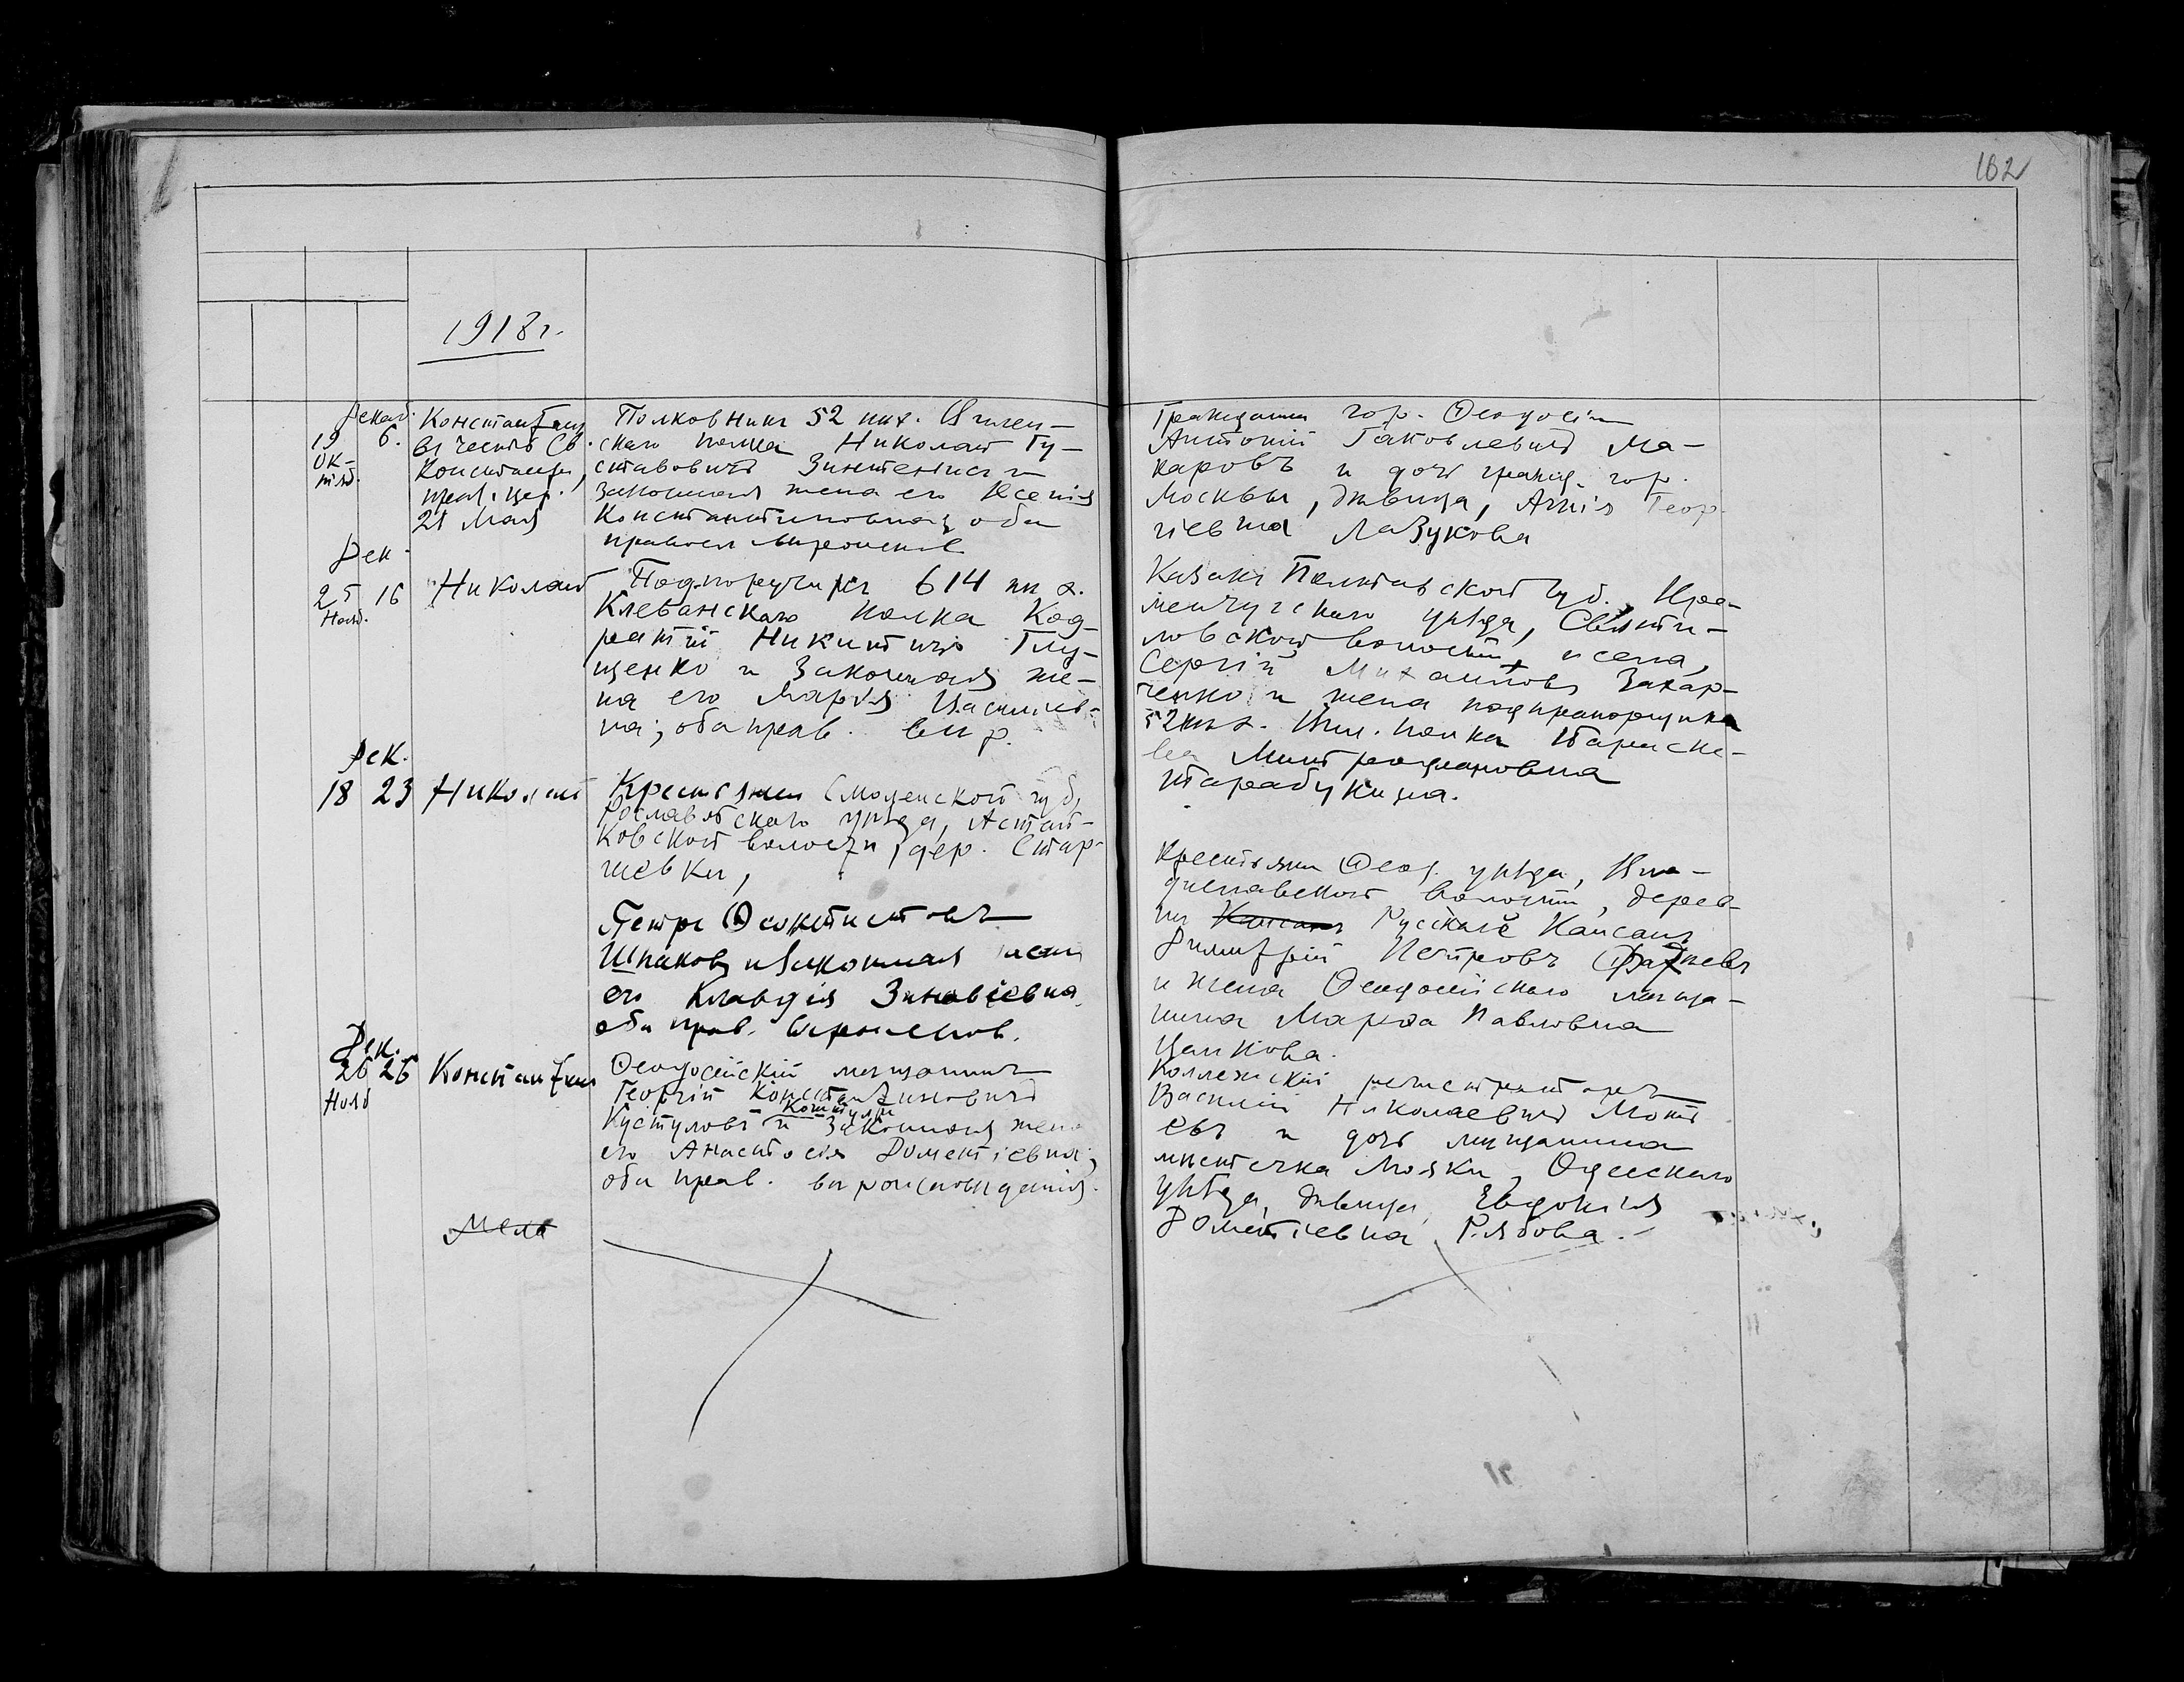 162
1918 г.
Декаб.
19 6.
Ок-
тяб.
Константин
въ честь Св.
Константина,
прав. цар.
21 Мая
Полковникъ 52 пѣх. Вилен-
скаго полка Николай Гу-
ставовичъ и
законная жена его Ксенія
Константиновна, оба
православнаго
Гражданинъ гор. Ѳеодосіи
Антоній Яковлевичъ Ма-
каровъ и дочь гражд. гор.
Москвы, дѣвица, Агнія Геор-
гіевна Лазукова
Дек.
25 16
Нояб.
Николай
Подпоручикъ 614 пѣх.
Клеванскаго полка Код-
ратій Никитичъ Глу-
щенко и законная же-
на его Марія Василіев-
на; оба прав. вѣр.
Казакъ Полтавской губ., Кре-
менчугскаго уѣзда, Святи-
ловской волости, и села,
Сергій Михаиловъ Захар-
ченко и жена подпрапорщика
52 пѣх. Вил. полка Параске-
ва Митрофановна
Тарабукина.
Дек.
18 23
Николай
Крестьянинъ Смоленской губ.,
Рославльскаго уѣзда,
волости, дер.
Петръ Ѳеоктистовъ
Шпаковъ и законная жена
его Клавдія Зиновіевна
оба прав.
Крестьянинъ Ѳеод. уѣзда, Вла-
диславской волости, дерев-
ни Русскаго
Димитрій Петровъ
и жена Ѳеодосійскаго мѣща-
нина Марѳа Павловна
Цанкова.
Дек.
26 26
Нояб
Константинъ
Ѳеодосійскій мѣщанинъ
Георгій Константиновичъ
Кустуловъ и законная жена
его Анастасія Дометіевна;
оба прав. вѣроисповѣданія.
Коллежскій регистраторъ
Василій Николаевичъ
евъ и дочь мѣщанина
мѣстечка Маяки, Одесскаго
уѣзда, дѣвица, Евдокія
Дометіевна Рябова.